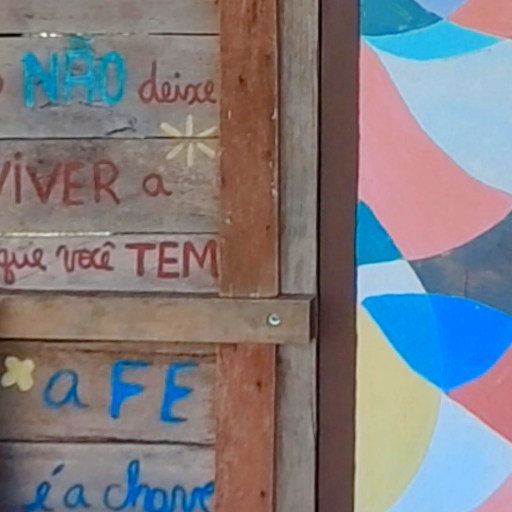 NÃO deixe
VIVER a
que você TEM
a FÉ
é a chave